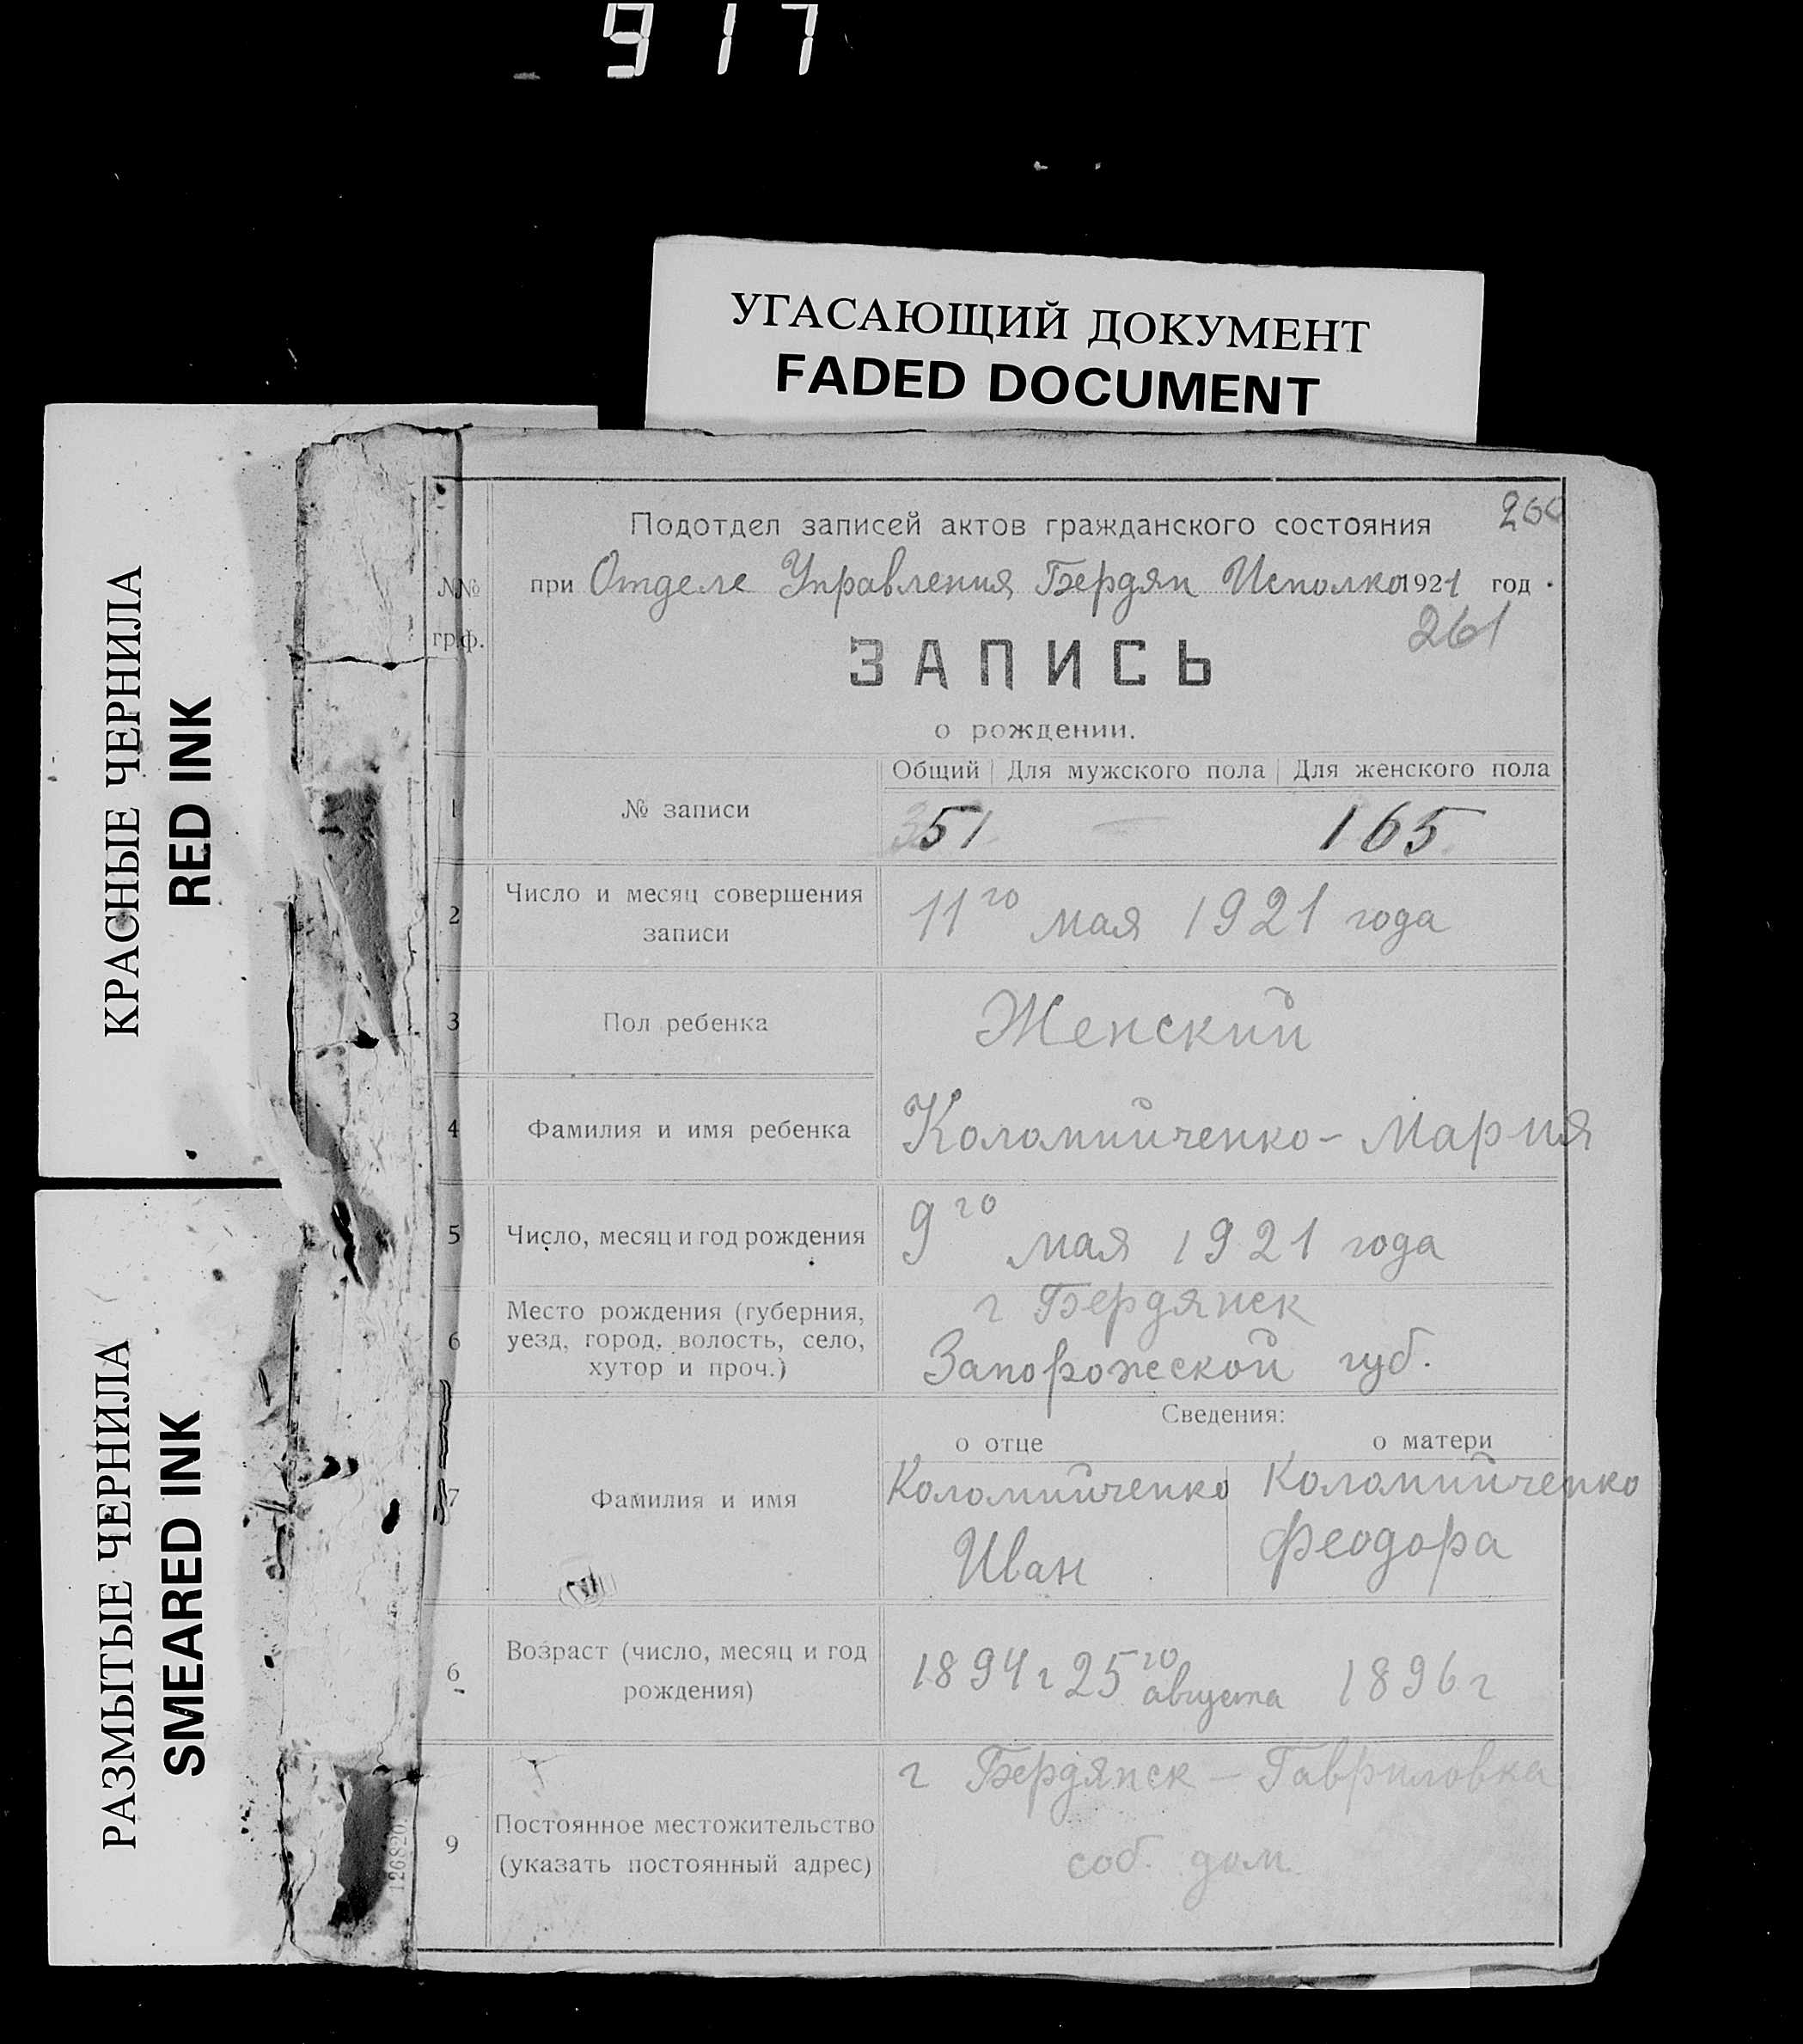 917
УГАСАЮЩИЙ ДОКУМЕНТ
FADED DOCUMENT
КРАСНЫЕ ЧЕРНИЛА
RED INK
РАЗМЫТЫЕ ЧЕРНИЛА
SMEARED INK
Подотдел записей актов гражданского состояния
№№ при Отделе Управления Бердян Исполко 1921 год
261
гр ф.
ЗАПИСЬ
о рождении.
Общий Для мужского пола Для женского пола
1 № записи 351 — 165
2 Число и месяц совершения
записи
11го мая 1921 года
3 Пол ребенка Женский
4 Фамилия и имя ребенка Коломийченко - Мария
5 Число, месяц и год рождения 9го мая 1921 года
6 Место рождения (губерния,
уезд, город, волость, село,
хутор и проч.)
г Бердянск
Запорожской губ.
Сведения:
о отце о матери
7 Фамилия и имя Коломийченко Коломийченко
Иван Феодора
6 Возраст (число, месяц и год
рождения)
1894 г 25го августа 1896 г
9 Постоянное местожительство
(указать постоянный адрес)
г Бердянск - Гавриловка
соб. дом.
126820